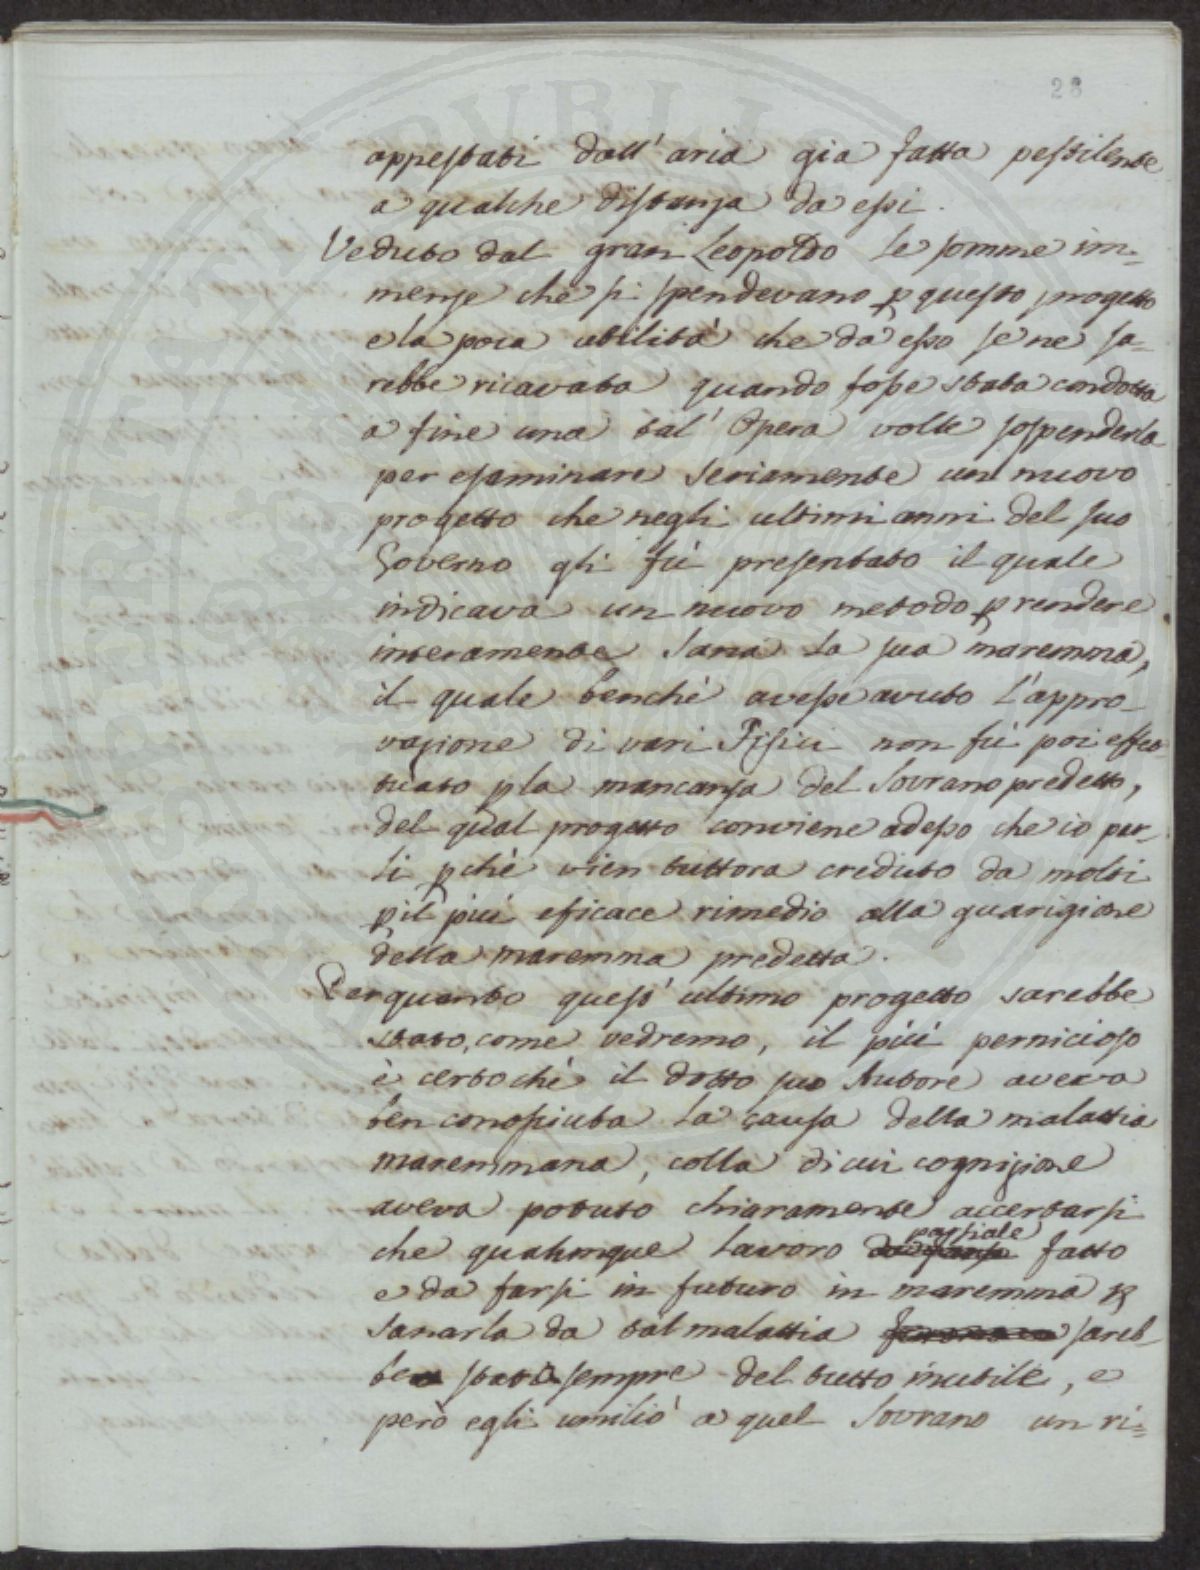 28
appestati dall'aria gia fatta pestilente
a qualche distanza da essi.
Veduto dal gran Leopoldo le somme im=
mense che si spendevano p questo progetto
e la poca utilità che da esso se ne sa=
rebbe ricavata quando fosse stata condotta
a fine una tal' Opera volle sospenderla
per esaminare seriamente un nuovo
progetto che negli ultimi anni del suo
Governo gli fù presentato il quale
indicava un nuovo metodo p rendere
interamente sana la sua maremma,
il quale benchè avesse avuto l'appro=
vazione di vari Fisici non fù poi effet=
tuato p la mancanza del Sovrano predetto,
del qual progetto conviene adesso che io par=
li pchè vien tuttora creduto da molti
p il più eficace rimedio alla guarigione
della maremma predetta.
Per quanto quest' ultimo progetto sarebbe
stato, come vedremo, il più pernicioso
è certo chè il dotto suo Autore aveva
ben conosciuta la causa della malattia
maremmana, colla di cui cognizione
aveva potuto chiaramente accertarsi
che qualunque lavoro parziale fatto
e da farsi in futuro in maremma p
sanarla da tal malattia sareb=
be stato sempre del tutto inutile, e
però egli umiliò a quel Sovrano un ri=